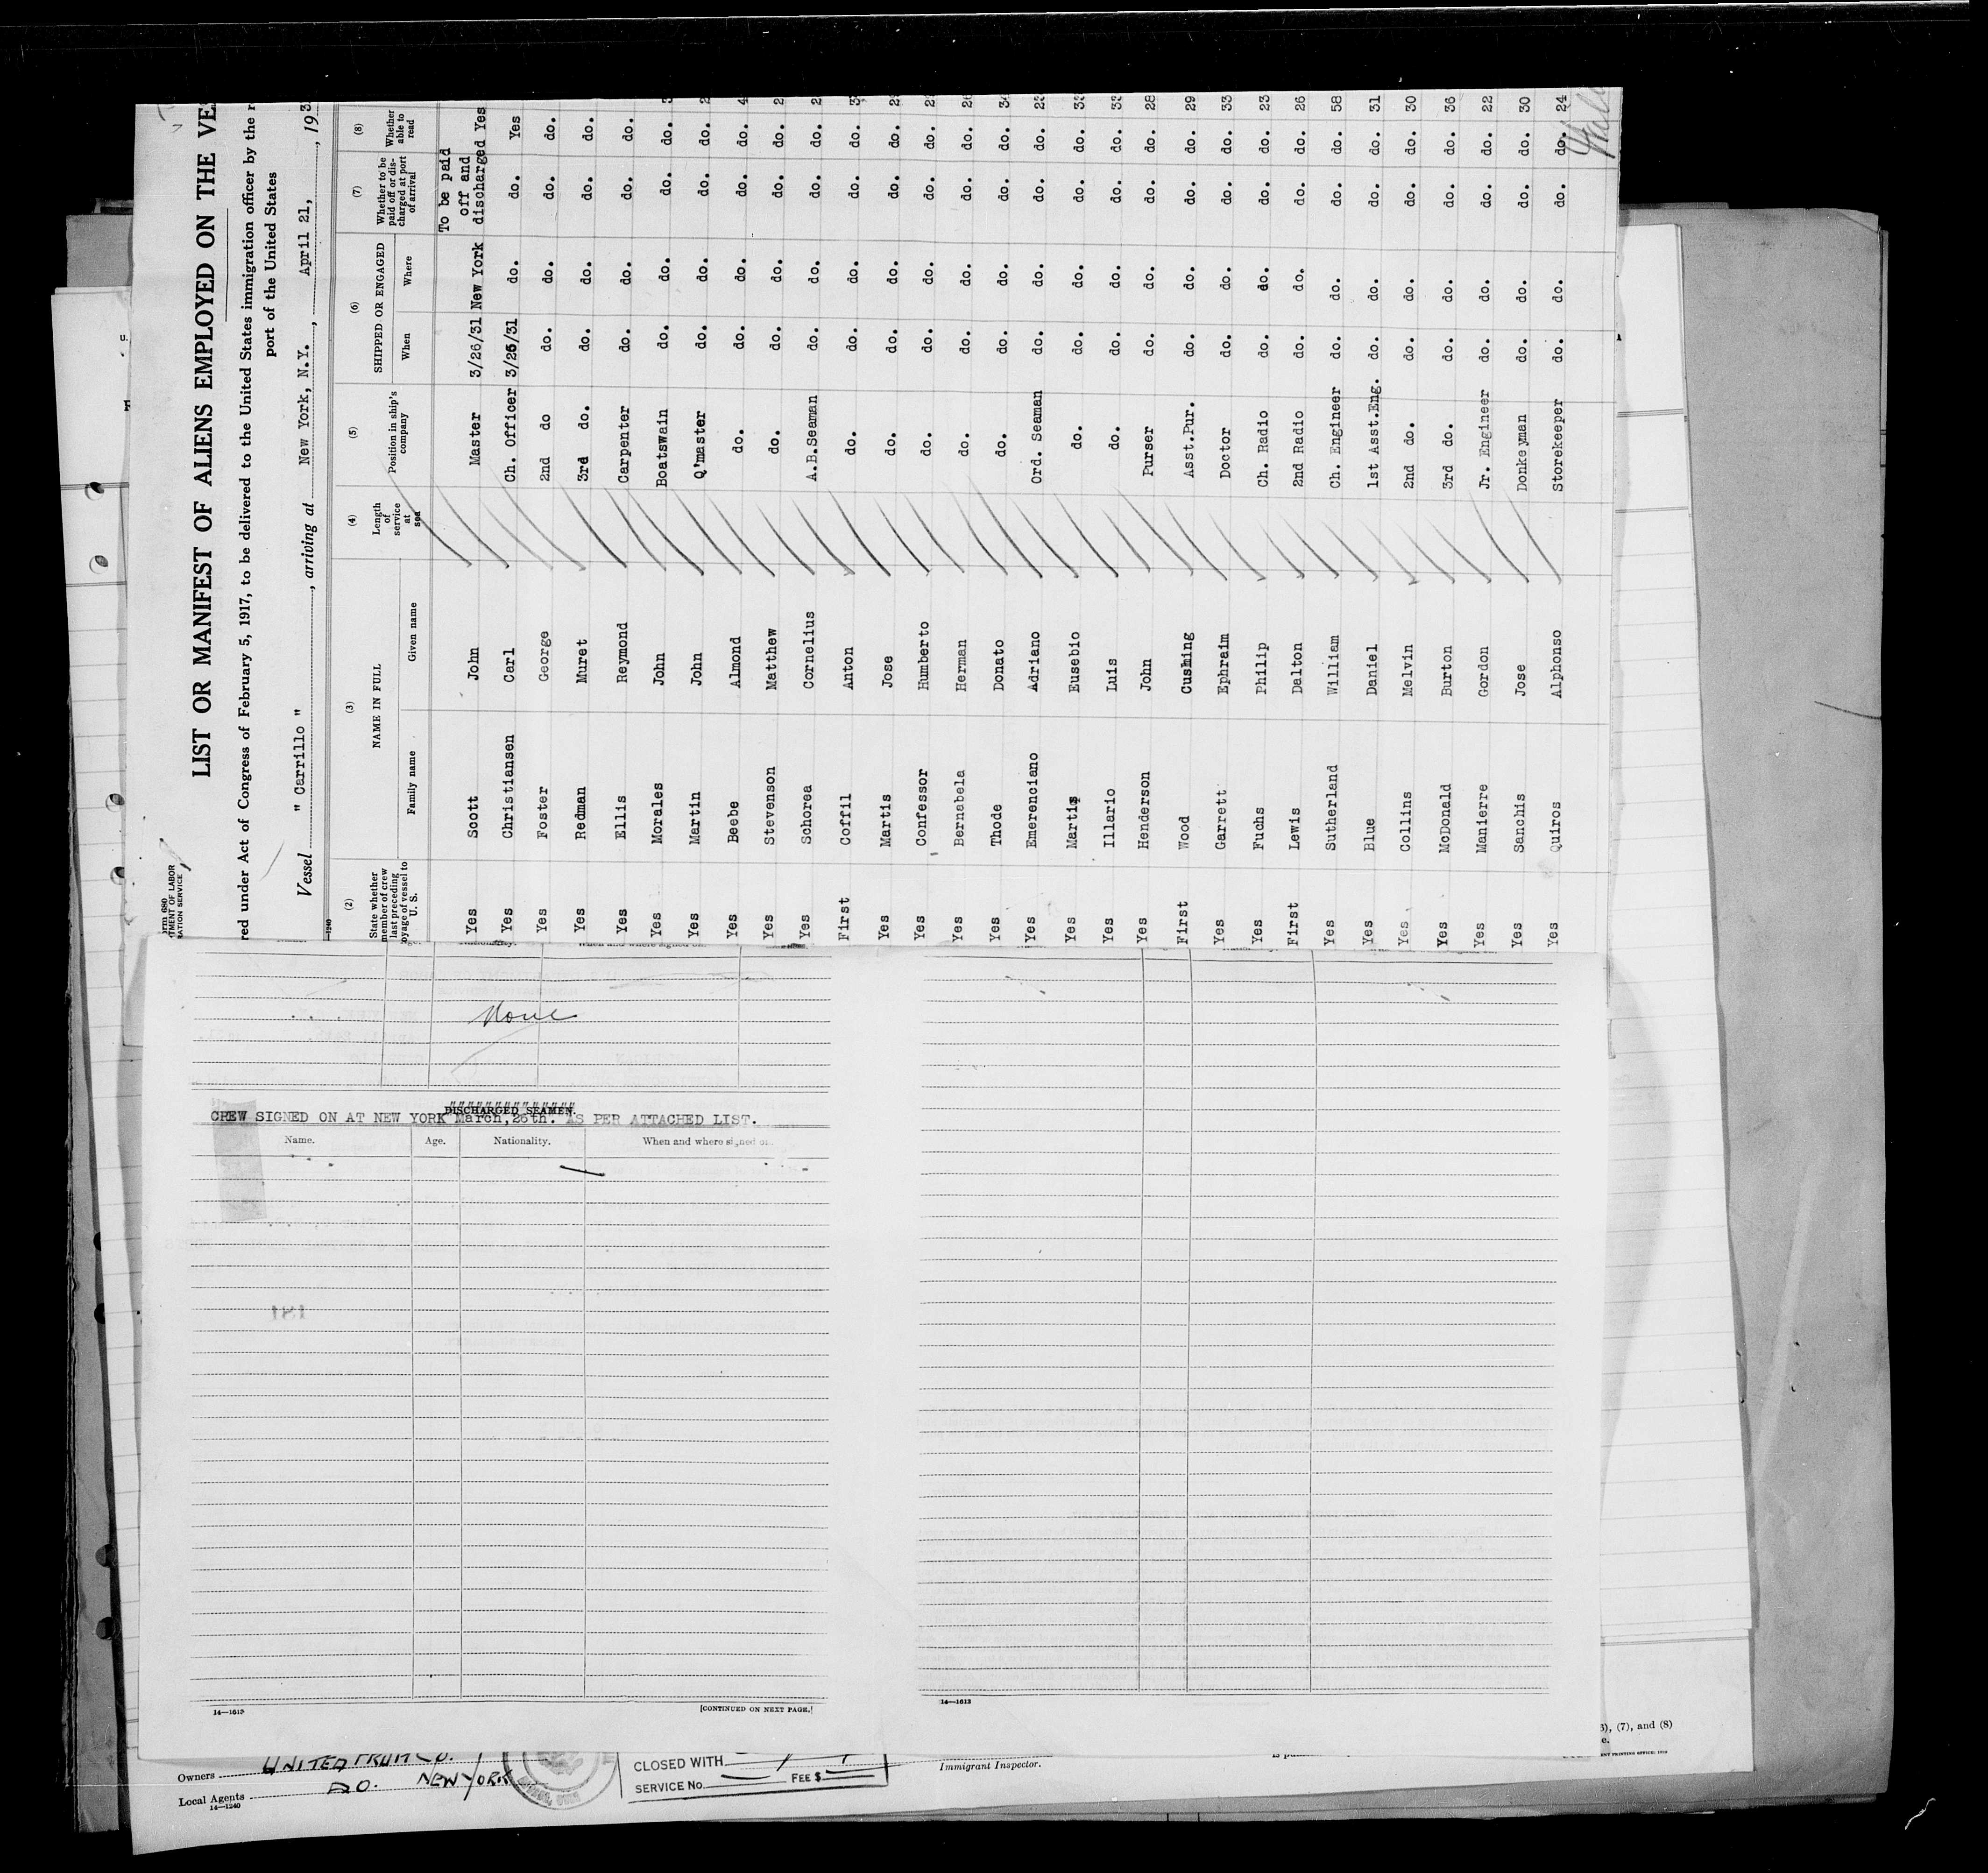 LIST OR MANIFEST OF ALIENS EMPLOYED ON THE VE
red under Act of Congress of February 5, 1917, to be delivered to the United States immigration officer by the r
port of the United States
Vessel " Carrillo " , arriving at New York, N.Y. , April 21, , 193
(2) (3) (4) (5) (6) (7) (8)
State whether member of crew last preceding voyage of vessel to U. S. NAME IN FULL Family name Given name Length of service at sea Position in ship's company SHIPPED OR ENGAGED When Where Whether to be paid off or discharged at port of arrival Whether able to read
Yes Scott John Master 3/26/31 New York To be paid off and discharged Yes
Yes Christiansen Carl Ch. Officer 3/25/31 do. do. Yes
Yes Foster George 2nd do do. do. do. do.
Yes Redman Muret 3rd do. do. do. do. do.
Yes Ellis Reymond Carpenter do. do. do. do.
Yes Morales John Boatswain do. do. do. do.
Yes Martin John Q'master do. do. do. do.
Yes Beebe Almond do. do. do. do. do.
Yes Stevenson Matthew do. do. do. do. do.
Yes Schorea Cornelius A.B.Seaman do. do. do. do.
First Coffil Anton do. do. do. do. do.
Yes Martis Jose do. do. do. do. do.
Yes Confessor Humberto do. do. do. do. do.
Yes Bernabela Herman do. do. do. do. do.
Yes Thode Donato do. do. do. do. do.
Yes Emerenciano Adriano Ord. Seaman do. do. do. do.
Yes Martis Eusebio do. do. do. do. do.
Yes Illario Luis do. do. do. do. do.
Yes Henderson John Purser do. do. do. do. 28
First Wood Cushing Asst.Pur. do. do. do. do. 29
Yes Garrett Ephraim Doctor do. do. do. do. 33
Yes Fuchs Philip Ch. Radio do. do. do. do. 23
First Lewis Dalton 2nd Radio do. do. do. do. 26
Yes Sutherland William Ch. Engineer do. do. do. do. 58
Yes Blue Daniel 1st Asst.Eng. do. do. do. do. 31
Yes Collins Melvin 2nd do. do. do. do. do. 30
Yes McDonald Burton 3rd do. do. do. do. do. 36
Yes Manierre Gordon Jr. Engineer do. do. do. do. 22
Yes Sanchis Jose Donkeyman do. do. do. do. 30
Yes Quiros Alphonso Storekeeper do. do. do. do. 24
None
DISCHARGED SEAMEN.
CREW SIGNED ON AT NEW YORK March,26th. AS PER ATTACHED LIST.
Name. Age. Nationality. When and where signed
14—1613 [CONTINUED ON NEXT PAGE.]
14—1613
3), (7), and (8)
Owners UNITED FRUIT CO.
Local Agents DO. NEW YORK
14—1240
CLOSED WITH
SERVICE No. FEE $
Immigrant Inspector.